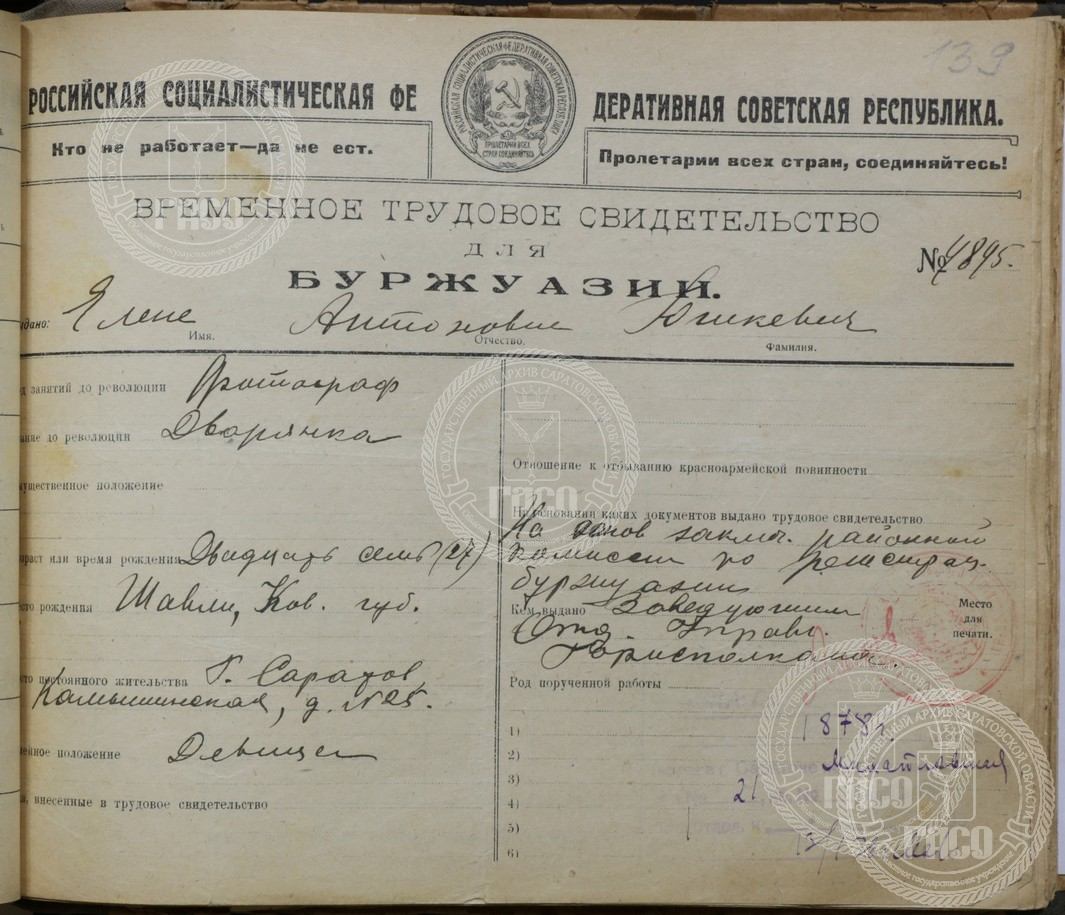 139
РОССИЙСКАЯ СОЦИАЛИСТИЧЕСКАЯ ФЕ ДЕРАТИВНАЯ СОВЕТСКАЯ РЕСПУБЛИКА.
РОССИЙСКАЯ СОЦИАЛИСТИЧЕСКАЯ ФЕДЕРАТИВНАЯ СОВЕТСКАЯ РЕСПУБЛИКА
ПРОЛЕТАРИИ ВСЕХ СТРАН СОЕДИНЯЙТЕСЬ!
Кто не работает—да не ест.
Пролетарии всех стран, соединяйтесь!
ВРЕМЕННОЕ ТРУДОВОЕ СВИДЕТЕЛЬСТВО
ДЛЯ
БУРЖУАЗИИ.
№ 4895.
дано: Елене Антоновне Юшкевич
Имя. Отчество. Фамилия.
д занятий до революции Фотограф
ние до революции Дворянка
ущественное положение
раст или время рождения Двадцать семь (27)
то рождения Шавли, Ков. губ.
то постоянного жительства г. Саратов,
Камышинская, д. №25.
ейное положение Девица
, внесенные в трудовое свидетельство
Отношение к отбыванию красноармейской повинности
На основании каких документов выдано трудовое свидетельство
На основ заключ. районной
комиссии по регистрац.
буржуазии
Кем выдано Заведующим
Отд. Управл.
Горисполкома.
Место
для
печати.
Род порученной работы
1)
2)
3)
4)
5)
6)
878
21
ГОСУДАРСТВЕННЫЙ АРХИВ САРАТОВСКОЙ ОБЛАСТИ
ГАСО
Областное государственное учреждение